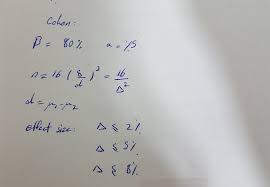 Cohen:
β = 80% α = %5
n = 16 (s/d)² = 16/Δ²
d = μ₁ - μ₂
effect size: Δ ≤ 2%
Δ ≤ 5%
Δ ≤ 8%